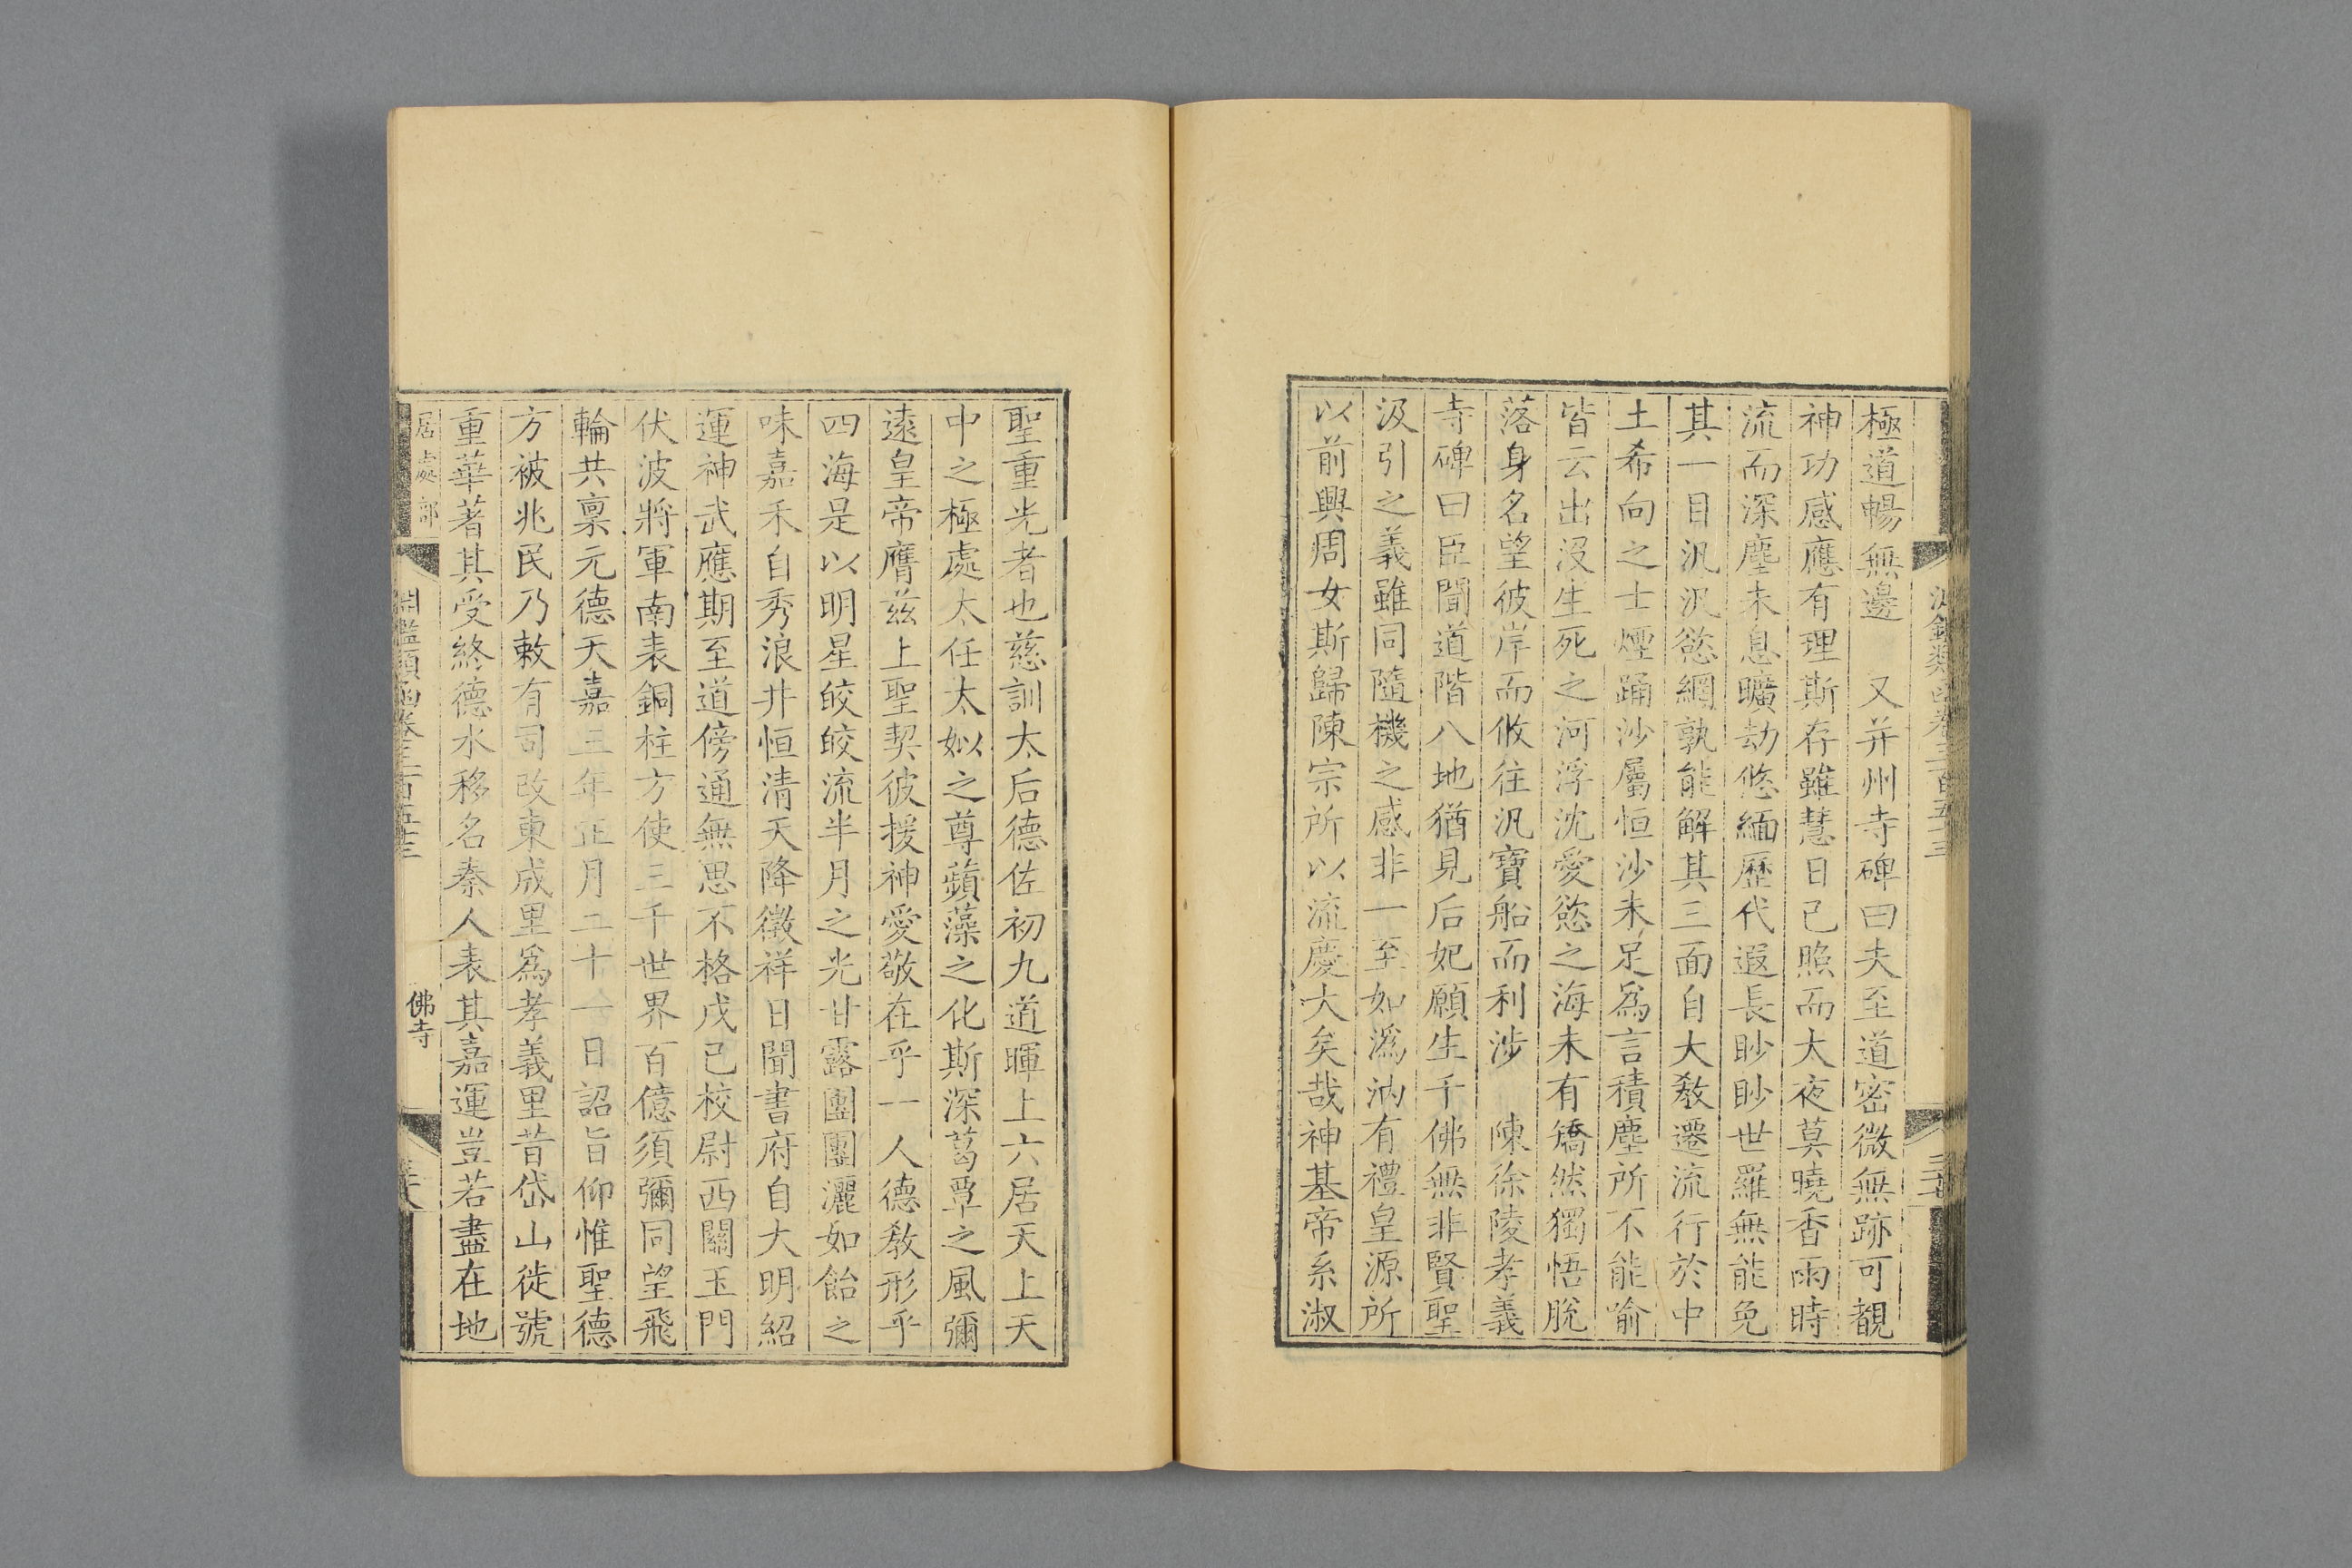 極道暢無邊　又并州寺碑曰夫至道密微無跡可覩
神功感應有理斯存雖慧日已照而大夜莫曉香雨時
流而深塵未息曠劫悠緬歷代遐長眇眇世羅無能免
其一目汎汎慾網孰能解其三面自大敎遷流行於中
土希向之士煙踊沙屬恒沙未足爲言積塵所不能喻
皆云出沒生死之河浮沈愛慾之海未有矯然獨悟脫
落身名望彼岸而攸往汎寶船而利涉　陳徐陵孝義
寺碑曰臣聞道階八地猶見后妃願生千佛無非賢聖
汲引之義雖同隨機之感非一至如潙汭有禮皇源所
以前興周女斯歸陳宗所以流慶大矣哉神基帝系淑
聖重光者也慈訓太后德佐初九道暉上六居天上天
中之極處太任太姒之尊蘋藻之化斯深葛覃之風彌
遠皇帝膺兹上聖契彼援神愛敬在乎一人德敎形乎
四海是以明星皎皎流半月之光甘露團團灑如飴之
味嘉禾自秀浪井恒清天降徵祥日聞書府自大明紹
運神武應期至道傍通無思不格戊己校尉西關玉門
伏波將軍南表銅柱方使三千世界百億須彌同望飛
輪共稟元德天嘉三年正月二十一日詔旨仰惟聖德
方被兆民乃敕有司改東成里爲孝義里昔岱山徙號
重華著其受終德水移名秦人表其嘉運豈若盡在地
居處部
淵鑑類函卷三百五十三
佛寺